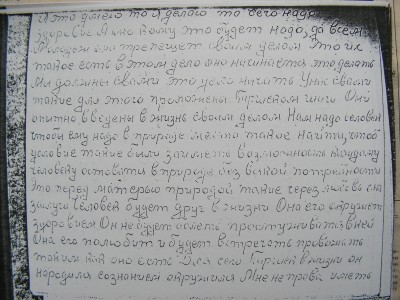 А это умело то я делаю то чего надо
здоровие Я иво кому это будет надо, да всем
Милионы они трепещет своим делом Это их
такое есть в этом дело оно начинается это делать
Мы должны своими это дело начить У них своими
такие для этого проложены книги Они
опытно введены в жизнь своим делом Нам надо человек
чтобы ему надо в природе место такое найти, чтоб
условие такие были занметь возможность каждому
человеку оставить в природе без всякой потребности
Это перед матерью природой такие через любовь она
заслуги человек будет друг в жизни Она его окружит
здоровием Он не будет болеть простуживаться в ней
Она его полюбит и будет встречать провожать
таким как оно есть Для сего в жизни он
народила сознанием окружила Мне не право иметь